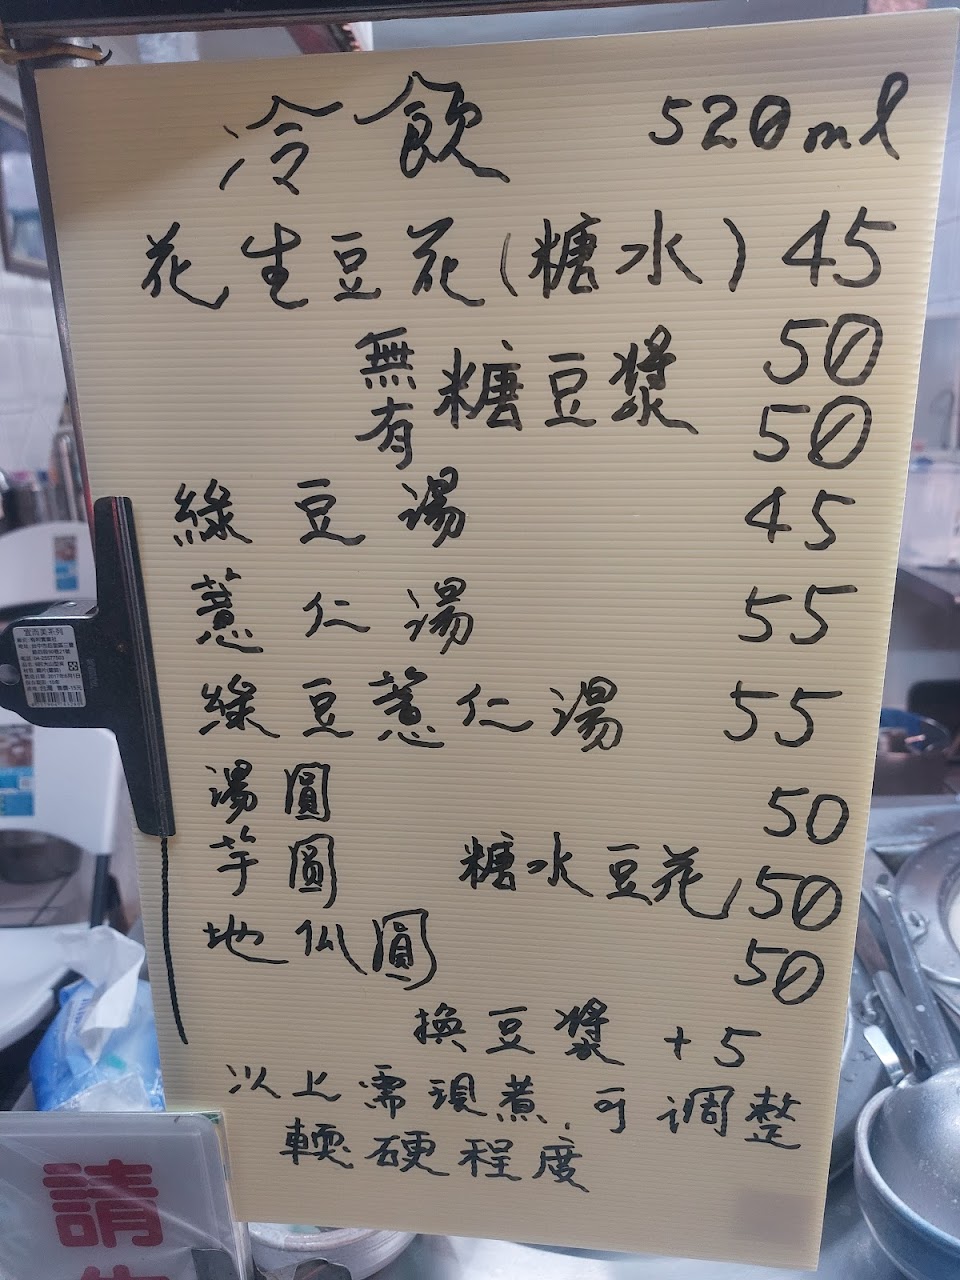 冷飲 520ml
花生豆花(糖水) 45
無 50
糖豆漿
有 50
綠豆湯 45
薏仁湯 55
綠豆薏仁湯 55
湯圓 50
芋圓 糖水豆花 50
地仏圓 50
換豆漿 +5
以上需現煮,可調整
輭硬程度
宜而美系列
請